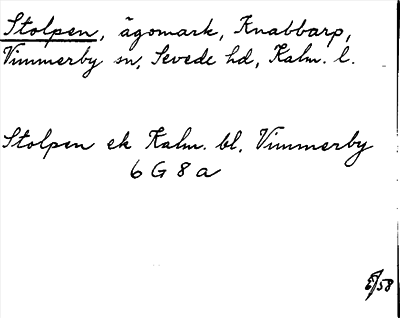 Stolpen, ägomark, Knabbarp,
Vimmerby sn, Sevede hd, Kalm. l.
Stolpen ek Kalm. bl. Vimmerby
6 G 8 a
58